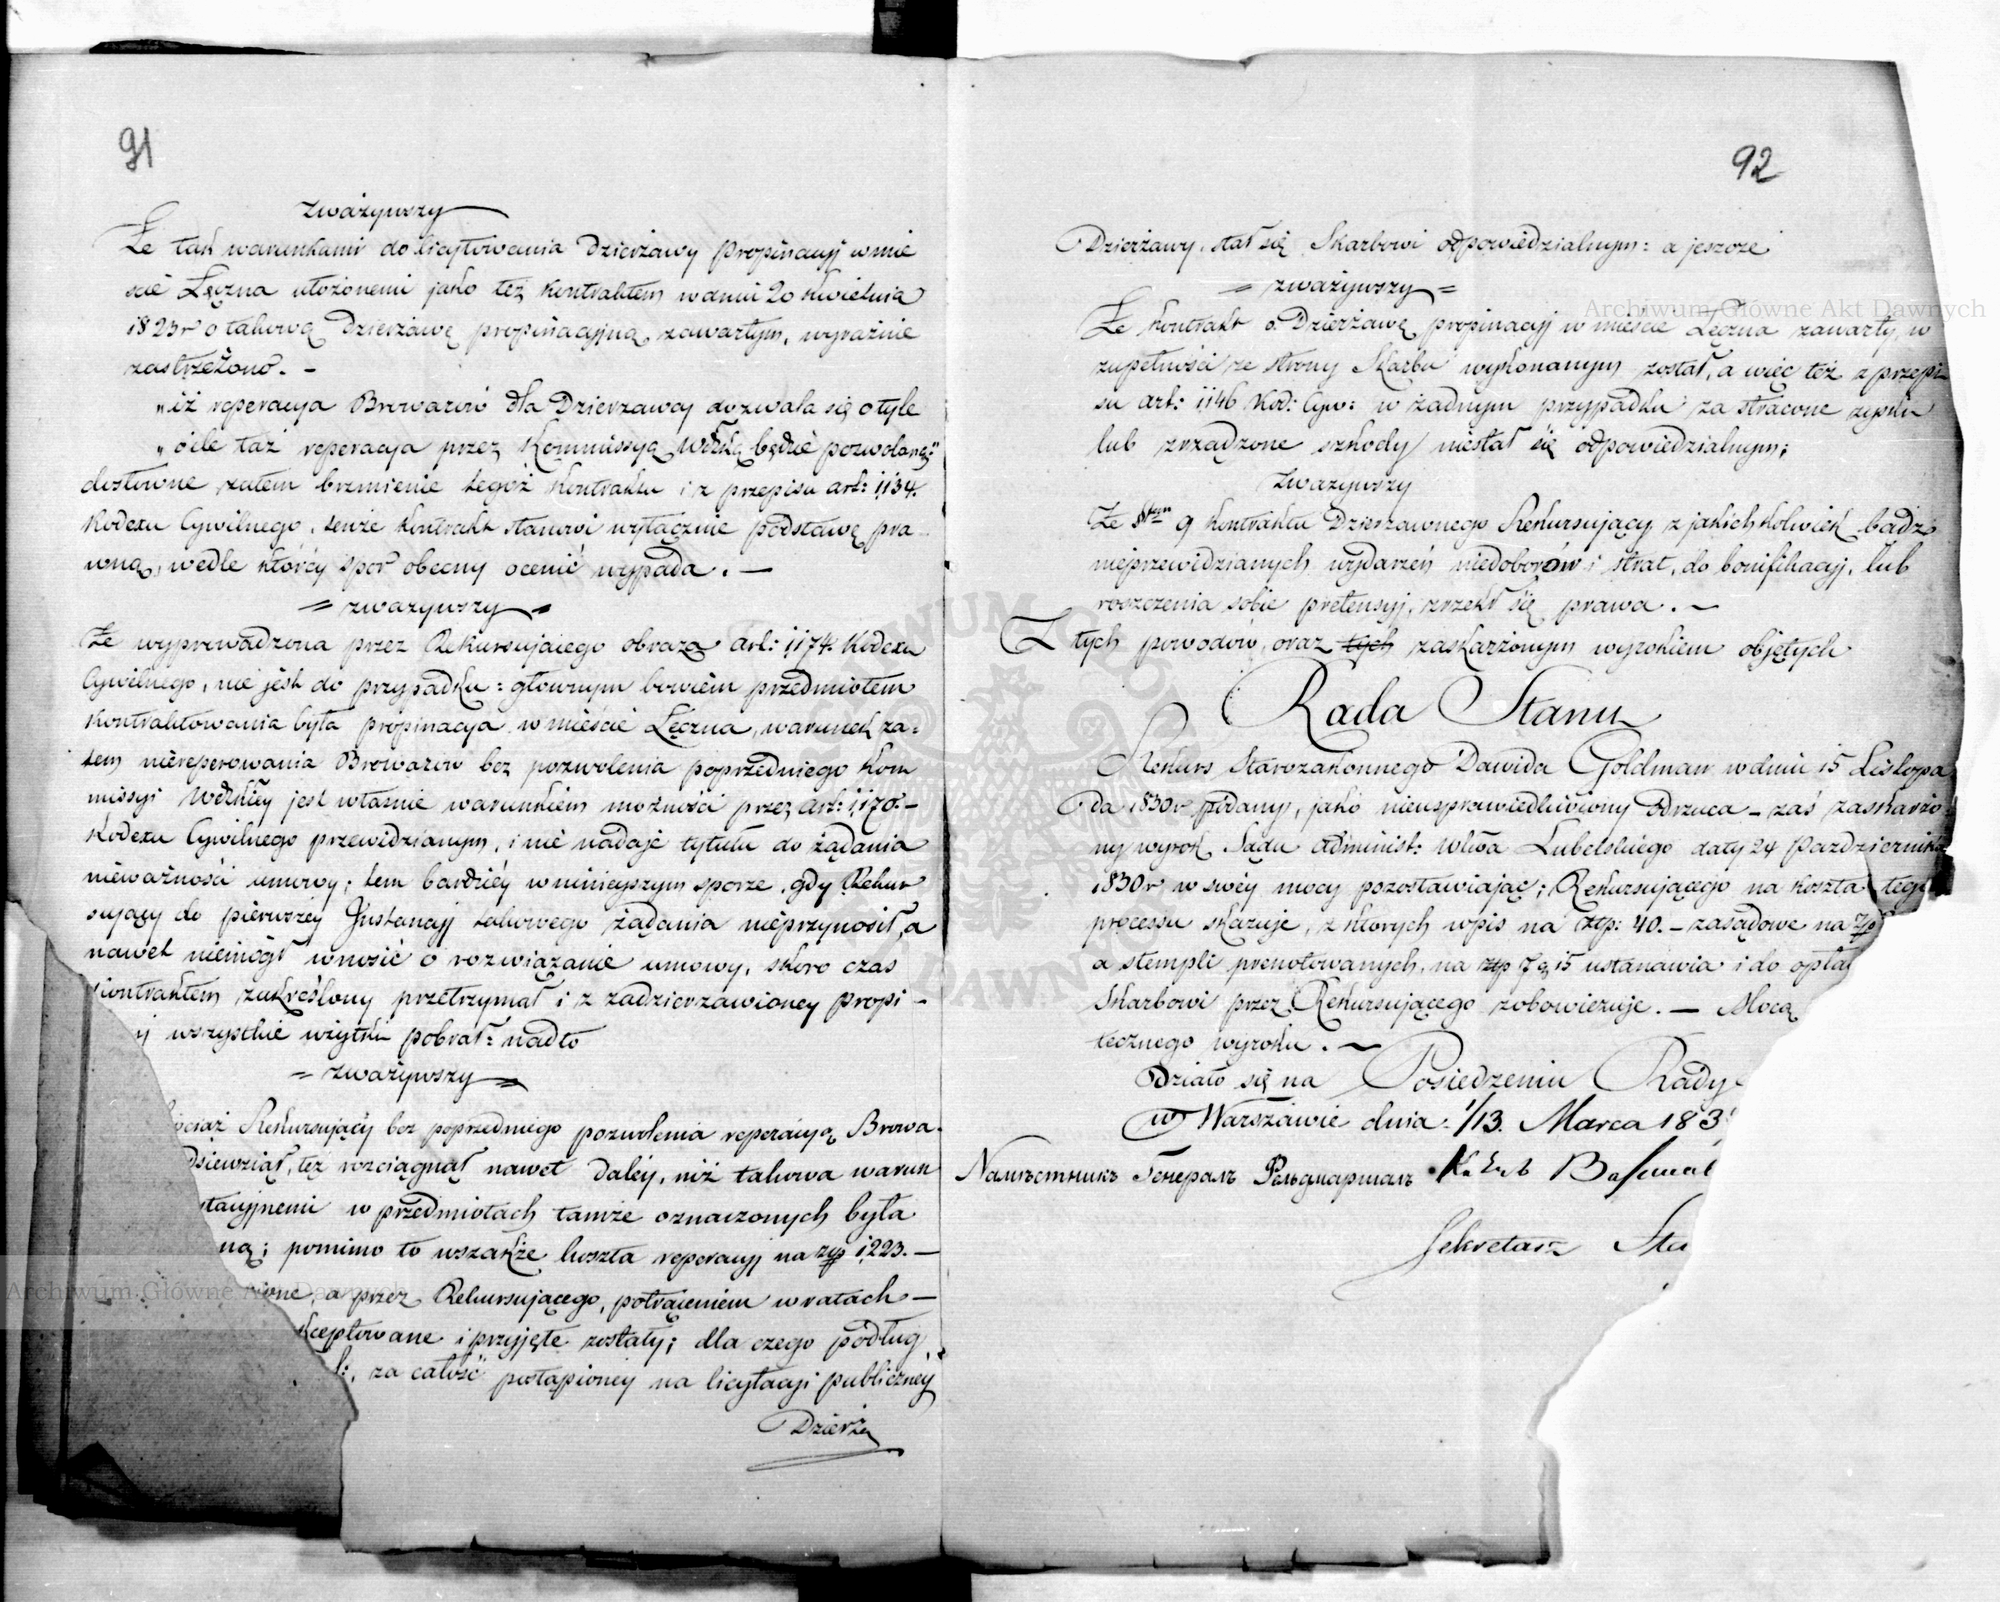 91
zważywszy
Że tak warunkami do licytowania Dzierżawy Propinacyj w mie
scie Łęczna ułożonemi jako też kontraktem w dniu 20 kwietnia
1823 r o takową Dzierżawę propinacyjną zawartym, wyraźnie
zastrzeżono. –
„iż reperacya Browarów dla Dzierzawcy dozwala się o tyle
„o ile taż reperacya przez Kommissyą Wdzką będzie pozwoloną;"
dosłowne zatem brzmienie tegoż kontraktu i z przepisu art: 1134.
Kodexu Cywilnego, tenże kontrakt stanowi wyłącznie podstawę pra-
wną, wedle któréy spor obecny ocenić wypada. —
= zwazywszy =
Że wyprowadzona przez Rekursującego obraza art: 1174. Kodexu
Cywilnego, nie jest do przypadku: głownym bowiem przedmiotem
kontraktowania była propinacya w mieście Łęczna, warunek za-
tem niereperowania Browarów bez pozwolenia poprzedniego Kom
missyi Wdzkiéy jest własnie warunkiem możności przez art: 1170.–
Kodexu Cywilnego przewidzianym, i nie nadaje tytułu do żądania
nieważności umowy; tem bardziéy w ninieyszym sporze, gdy Rekur
sujący do pierwszéy Jnstancyj takowego żądania nieprzynosił, a
nawet niemógł wnosić o rozwiązanie umowy, skoro czas
kontraktem zakreślony przetrzymał i z zadzierzawioney propi –
j wszystkie użytki pobrał: nadto
= zważywszy =
ciaż Rekursujący bez poprzedniego pozwolenia reperacyą Browa-
dsiewziął, też rozciągnął nawet daléy, niż takowa warun
tacyjnemi w przedmiotach tamże oznaczonych była
ną; pomimo to wszakże koszta reperacyj na zyp 1223. —
one, a przez Rekursującego, potrąceniem w ratach —
kceptowane i przyjęte zostały; dla czego podług
ł:, za całość postąpioney na licytacyi publiczney
Dzierża
92
Dzierżawy, stał się Skarbowi odpowiedzialnym: a jeszcze
= zważywszy =
Że kontrakt o Dzierżawę propinacyj w mieście Łęczna zawarty, w
zupełności ze strony Skarbu wykonanym został, a więc też z przepi
su art: 1146 Kod: Cyw: w żadnym przypadku za stracone zyski
lub zrządzone szkody niestał się odpowiedzialnym;
zwazywszy
Że §tem 9 kontraktu Dzierzawnego Rekursujący z jakichkolwiek bądź
nieprzewidzianych wydarzeń niedoborów i strat, do bonifikacyj, lub
roszczenia sobie pretensyj, zrzekł się prawa. –
Z tych powodów, oraz tych zaskarżonym wyrokiem objętych
Rada Stanu
Rekurs Starozakonnego Dawida Goldman w dniu 15 Listopa
Da 1830 r podany, jako nieusprawiedliwiony odrzuca – zaś zaskarżo
ny wyrok Sądu Administ: Wdwa Lubelskiego daty 24 Pazdziernika
1830 r w swéy mocy pozostawiając; Rekursującego na koszta tego
processu skazuje, z których wpis na ztp: 40. – zasądowe na zyp
a stempli prenotowanych, na ztp 7 g 15 ustanawia i do opła
Skarbowi przez Rekursującego zobowiezuje. — Mocą
tecznego wyroku. –
Działo się na Posiedzeniu Rady
w Warszawie dnia 1/13. Marca 183
Намѣстникъ Генералъ Фельдмаршалъ
Sekretarz Sta